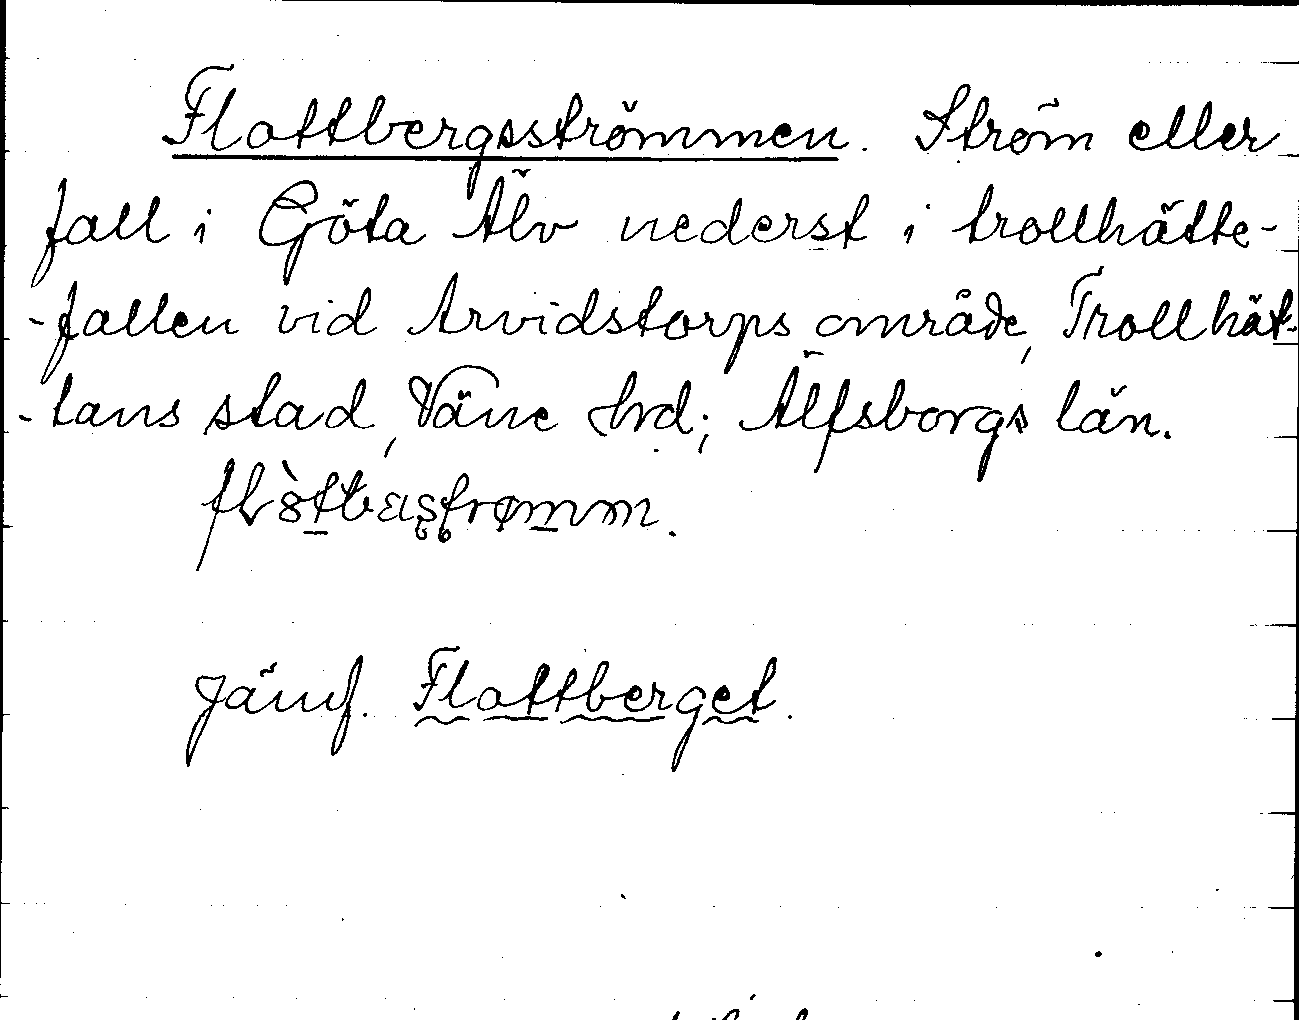 Flottbergsströmmen. Ström eller
fall i Göta Älv nederst i trollhätte-
-fallen vid Arvidstorps område, Trollhät-
-tans stad, Väne hrd; Älfsborgs län.
Jämf. Flottberget.